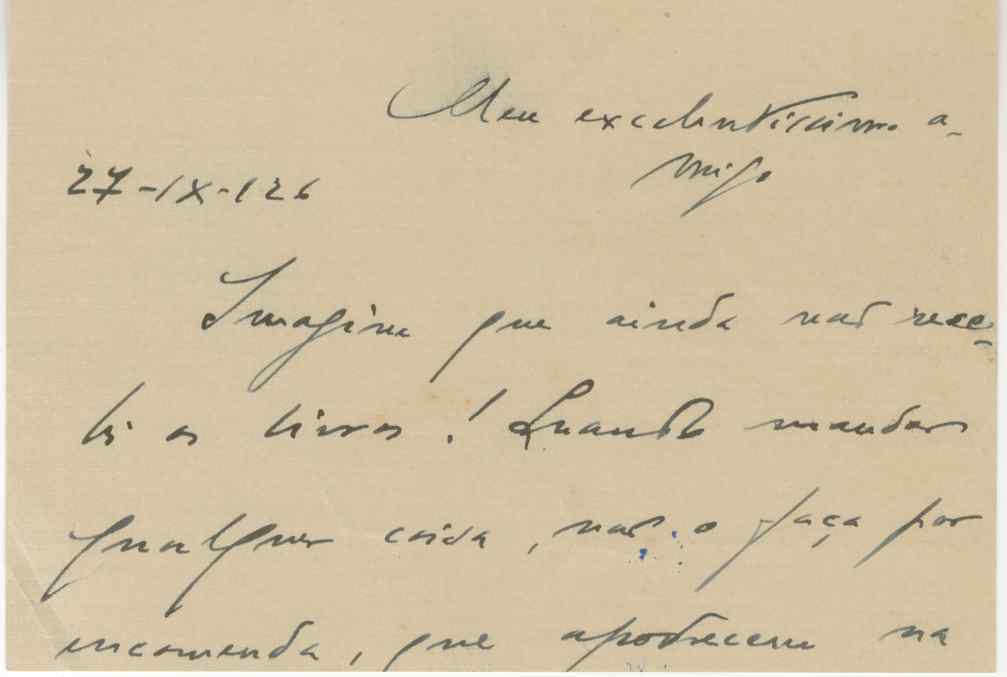 Meu excelentissimo a-
migo
27-IX-126
Imagine que ainda não rece-
bi os livros! Quando mandar
qualquer coisa, não o faça por
encomenda, que apodrecem na